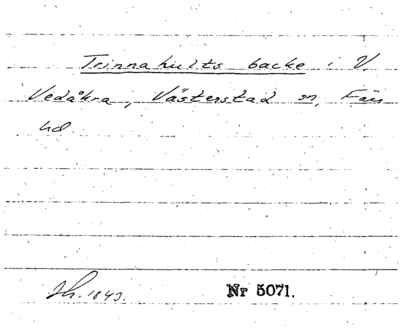 Trinnahults backe i V.
Vedåkra, Västerstad sn, Färs
hd.
Sk. 1843.
Nr 5071.